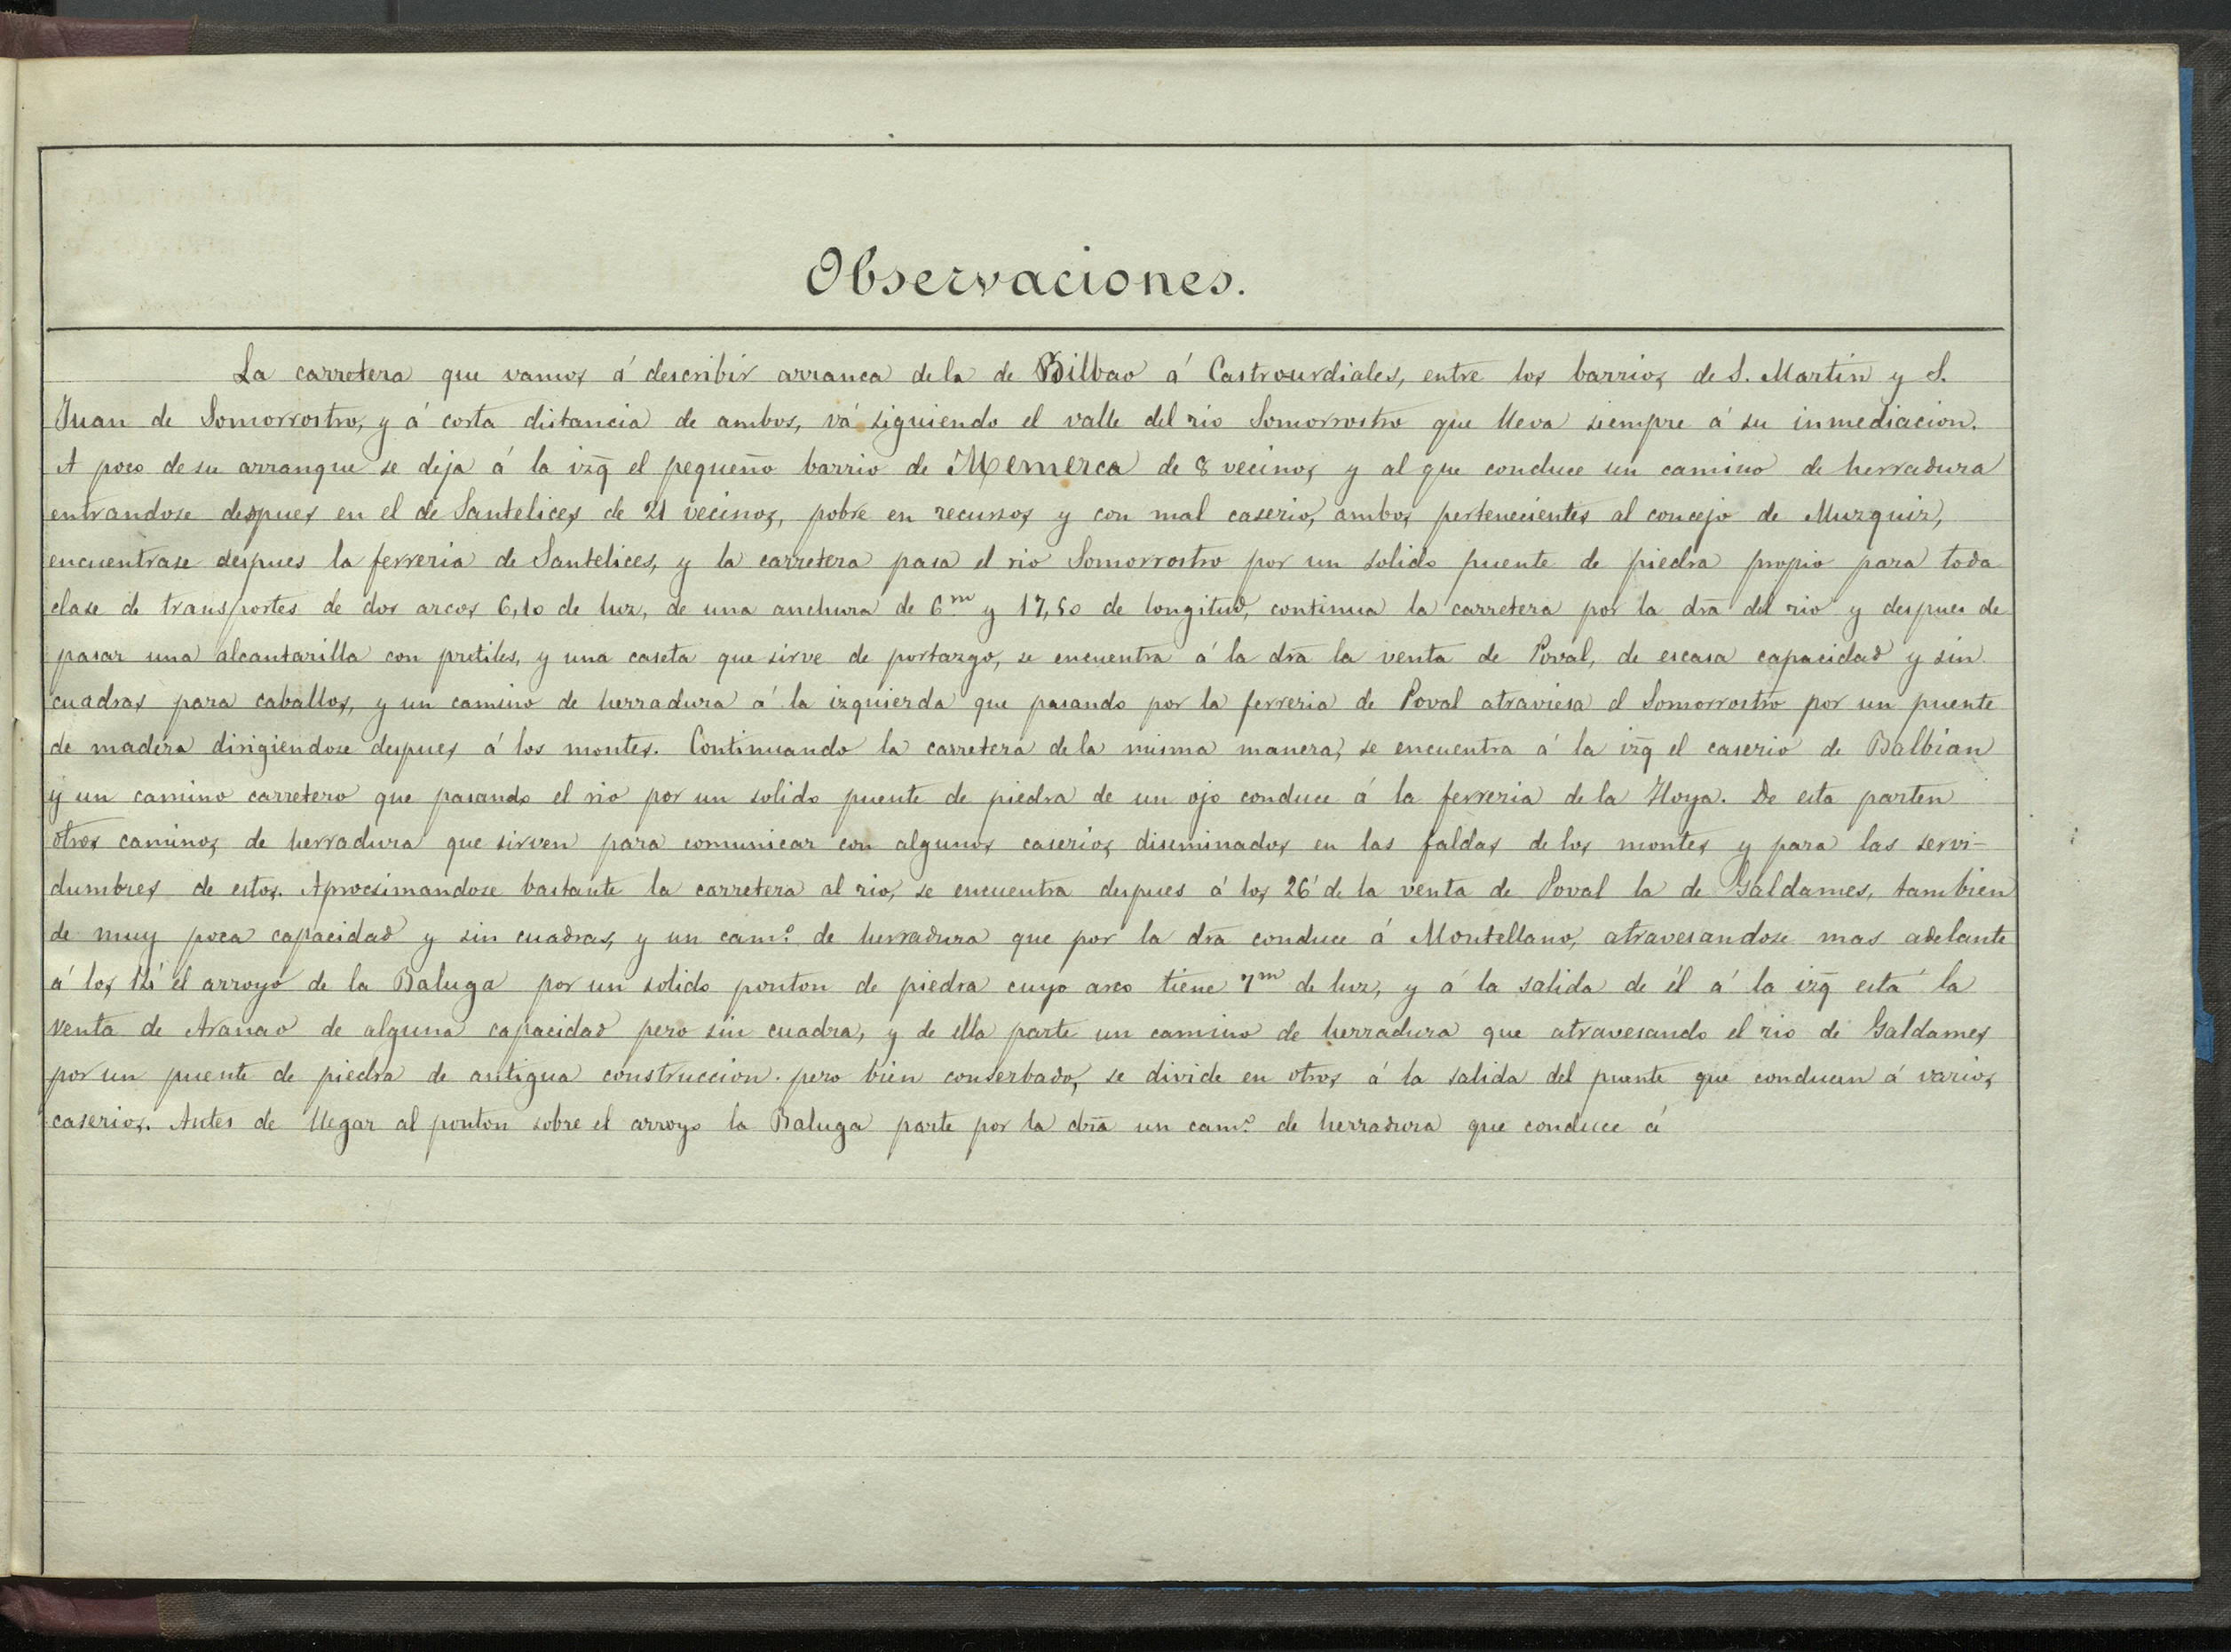 Observaciones.
La carretera que vamos á describir arranca dela de Bilbao á Castrourdiales, entre los barrios de S. Martin y S.
Juan de Somorrostro, y á corta distancia de ambos, vá siguiendo el valle del rio Somorrostro que lleva siempre á su inmediacion.
A poco de su arranque se deja á la izq̄ el pequeño barrio de Memerca de 8 vecinos y al que conduce un camino de herradura
entrandose despues en el de Santelices de 21 vecinos, pobre en recursos y con mal caserio, ambos pertenecientes al concejo de Muzquiz,
encuentrase despues la ferreria de Santelices, y la carretera pasa el rio Somorrostro por un solido puente de piedra propio para toda
clase de transportes de dos arcos 6,10 de luz, de una anchura de 6.m y 17,50 de longitud, continua la carretera por la drā del rio y despues de
pasar una alcantarilla con pretiles, y una caseta que sirve de portazgo, se encuentra á la drā la venta de Poval, de escasa capacidad y sin
cuadras para caballos, y un camino de herradura á la izquierda que pasando por la ferreria de Poval atraviesa el Somorrostro por un puente
de madera dirigiendose despues á los montes. Continuando la carretera dela misma manera, se encuentra á la izq̄ el caserio de Balbian
y un camino carretero que pasando el rio por un solido puente de piedra de un ojo conduce á la ferreria dela Hoya. De esta parten
otros caminos de herradura que sirven para comunicar con algunos caserios diseminados en las faldas de los montes y para las servi-
dumbres de estos. Aprocsimandose bastante la carretera al rio, se encuentra despues á los 26' de la venta de Poval la de Galdames, tambien
de muy poca capacidad y sin cuadras, y un cam.º de herradura que por la drā conduce á Montellano, atravesandose mas adelante
á los el arroyo de la Baluga por un solido ponton de piedra cuyo arco tiene 7m de luz, y á la salida de él á la izq̄ está la
venta de Aranao de alguna capacidad pero sin cuadra, y de ella parte un camino de herradura que atravesando el rio de Galdames
por un puente de piedra de antigua construccion. pero bien conserbado, se divide en otros á la salida del puente que conducen á varios
caserios. Antes de llegar al ponton sobre el arroyo la Baluga parte por la drā un cam.º de herradura que conduce á